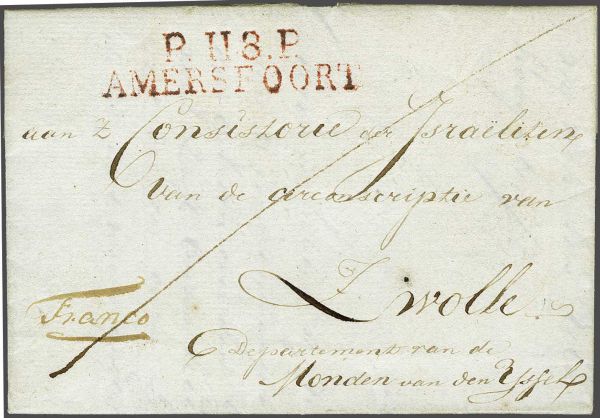 P. 118. P.
AMERSFOORT
aan 't Consistorie der Israëliten
van de circonscriptie van
Zwolle
Franco
Departement van de
Monden van den Yssel